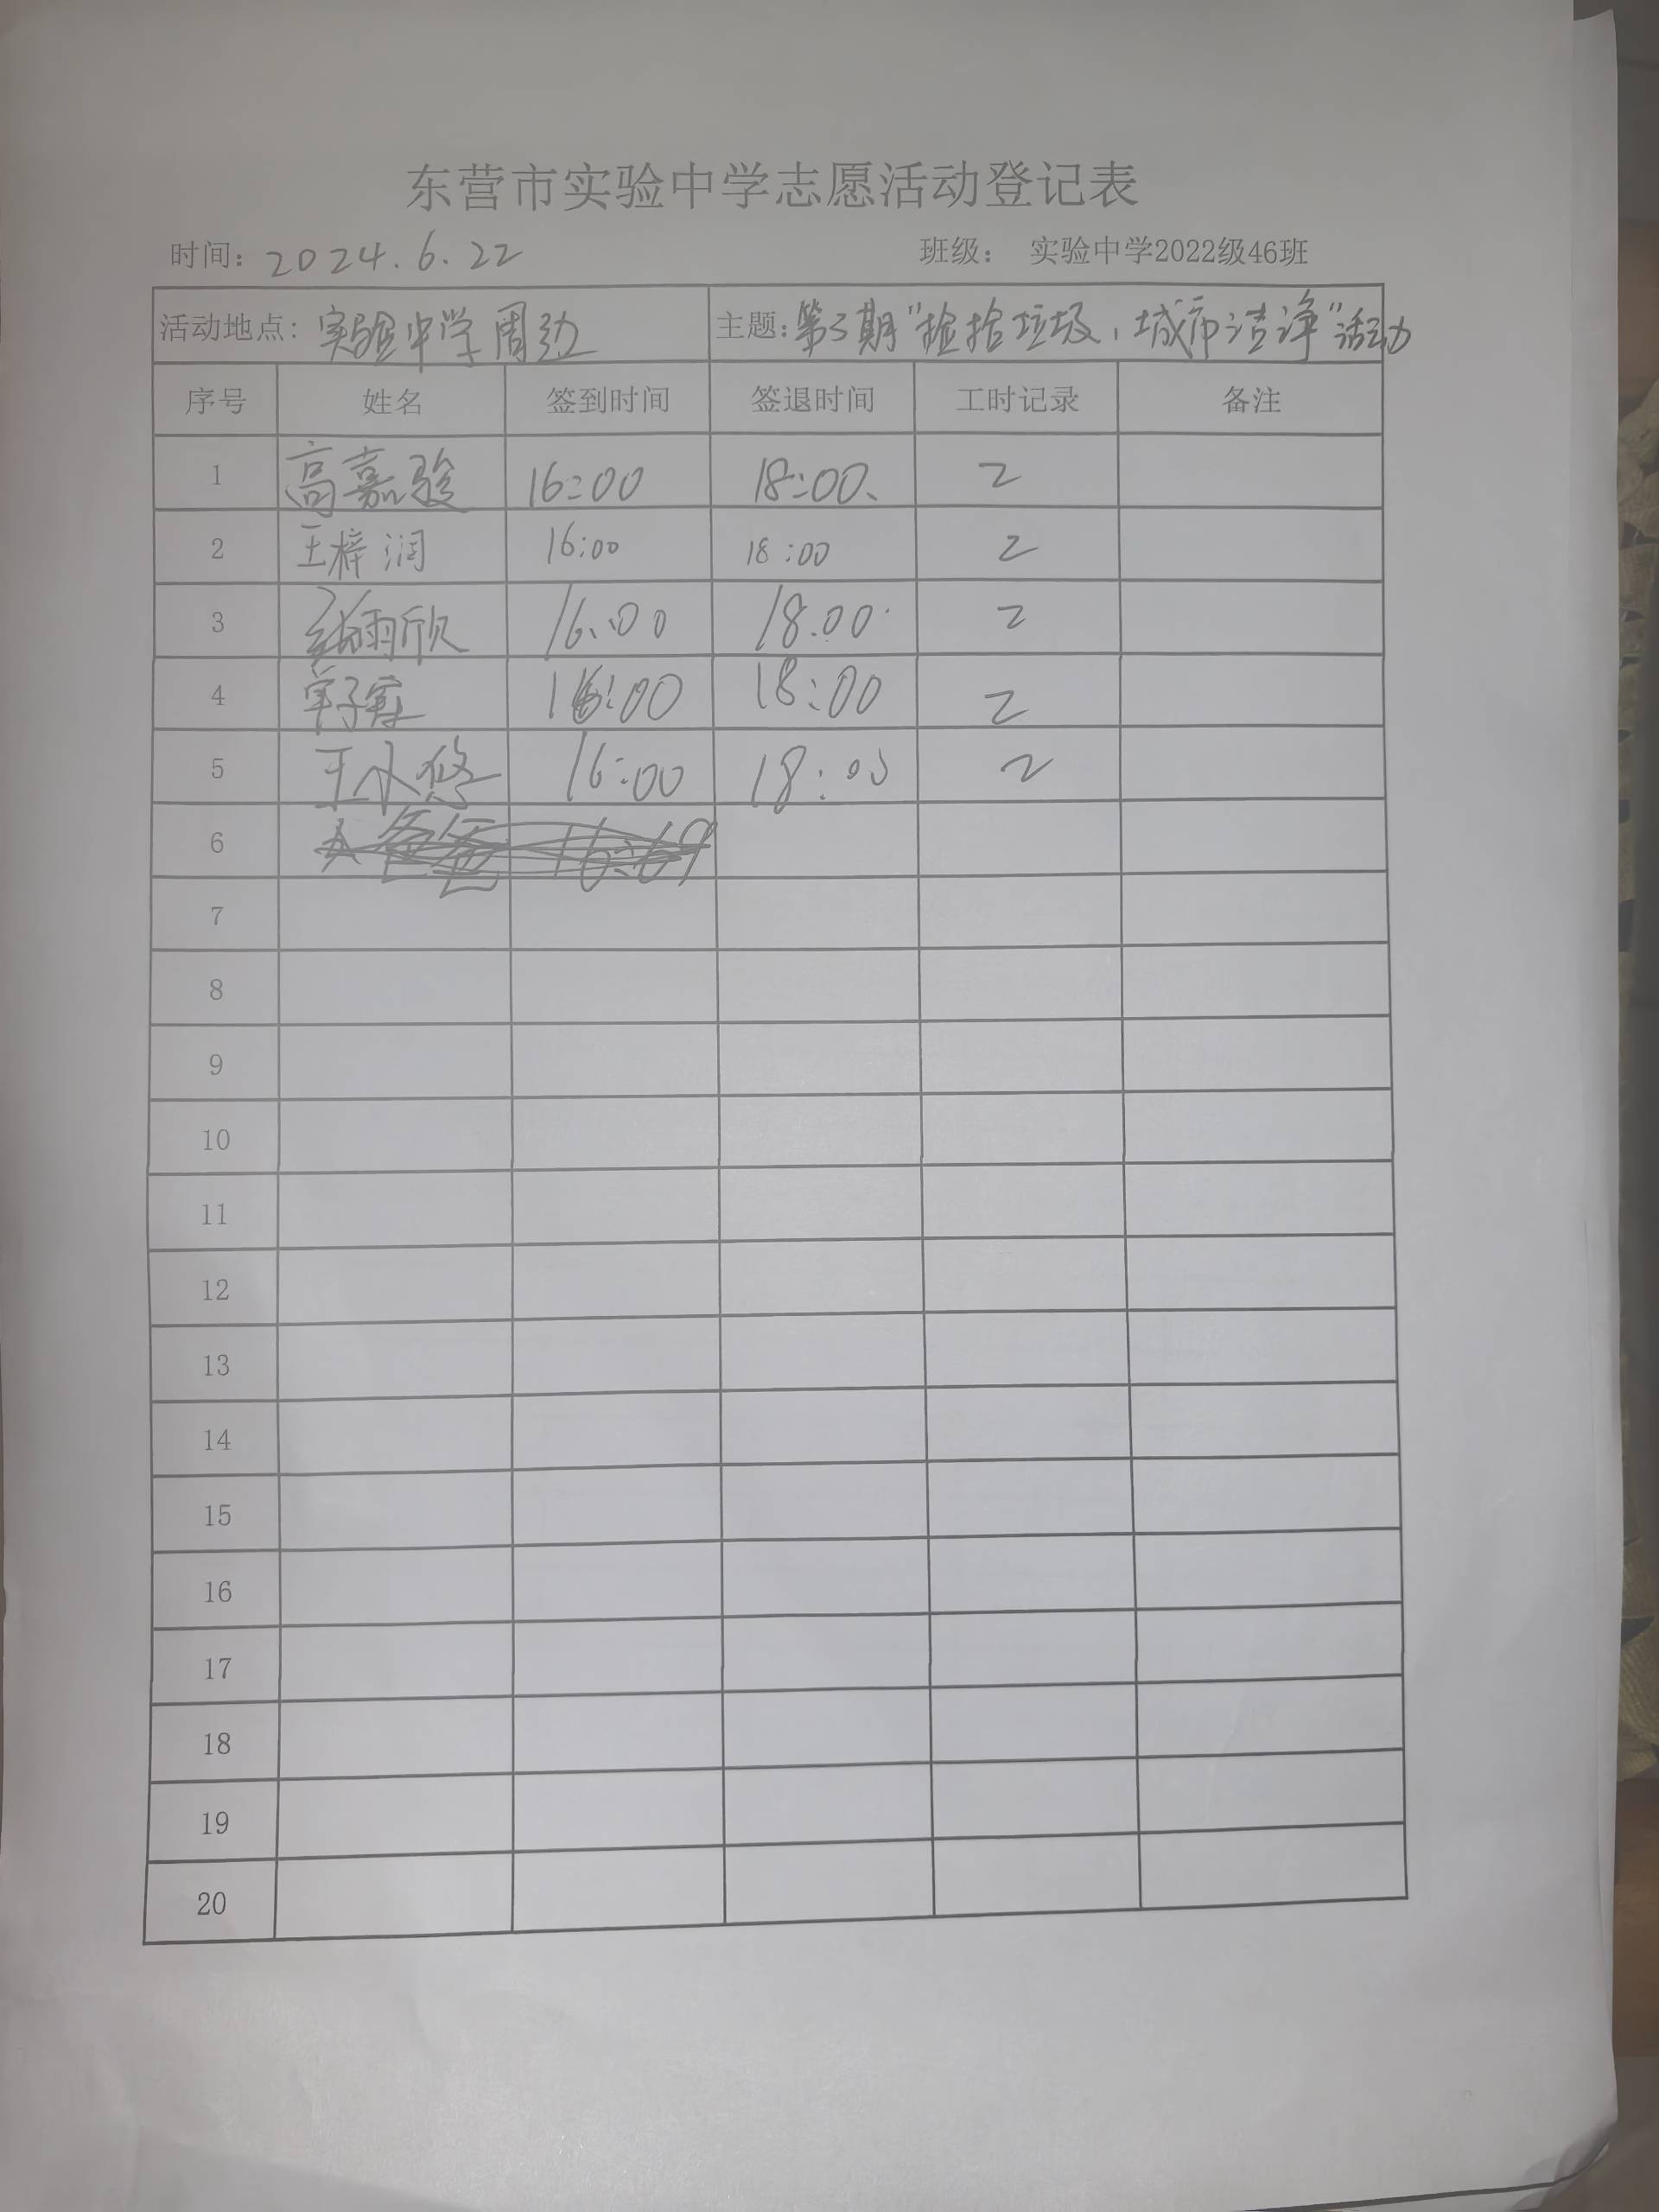 东营市实验中学志愿活动登记表
时间: 2024.6.22 班级: 实验中学2022级46班
活动地点: 实验中学周边 主题: 第3期"捡拾垃圾,城市洁净"活动
序号 姓名 签到时间 签退时间 工时记录 备注
1 高嘉骏 16:00 18:00、 2
2 王梓润 16:00 18:00 2
3 张雨欣 16:00 18:00 2
4 16:00 18:00 2
5 王小悠 16:00 18:00 2
6
7
8
9
10
11
12
13
14
15
16
17
18
19
20